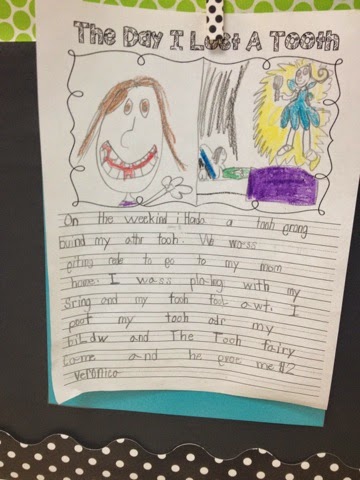 The Day I Lost A Tooth
On the weekind i Hada a tooh grong
buind my athr tooh. We wass
geting rede to go to my mom
home. I wass plaing with my
Sring and my tooh fool awt. I
poot my tooh adr my
and The Tooh fairy
came and he gave me $2
Veronica